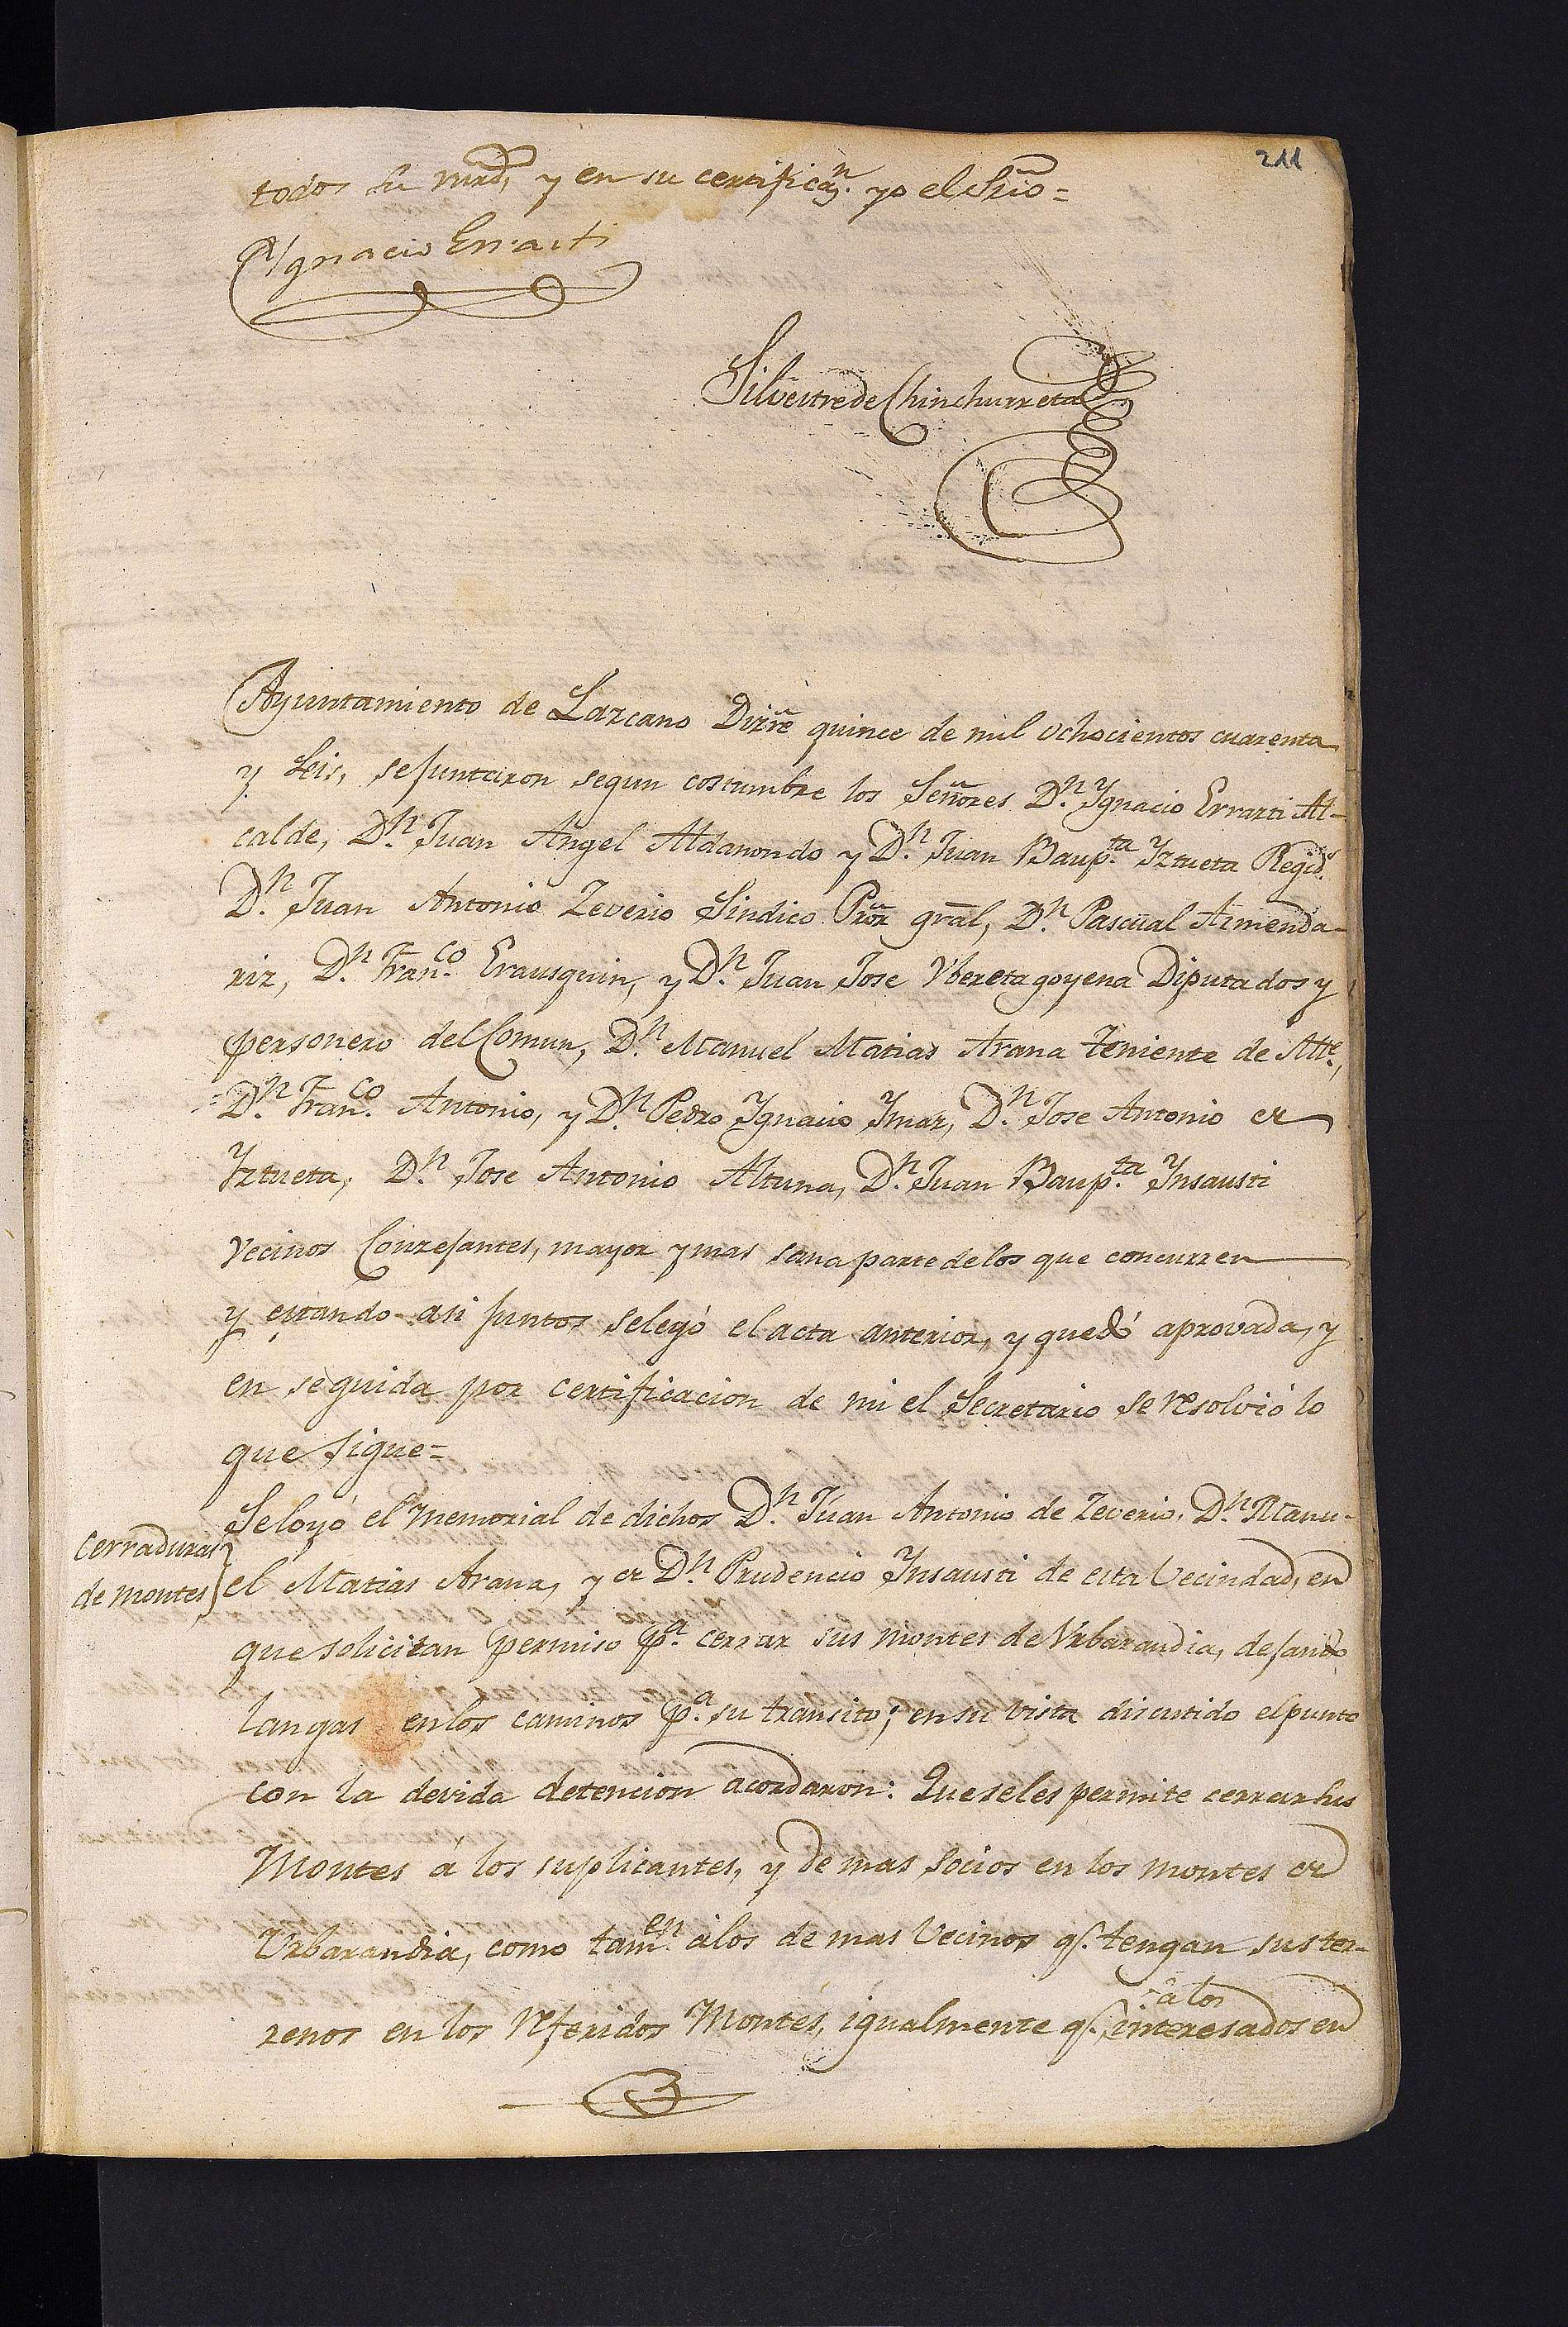 211
todos su mrd, y en su certificn. yo el Srio=
Ygnacio Errasti
Silvestre de Chinchurreta
Ayuntamiento de Lazcano Dizre quince de mil ochocientos cuarenta
y seis, se juntaron segun costumbre los Señores Dn. Ygnacio Errazti Al-
calde, Dn. Juan Angel Aldanondo y Dn. Juan Baupta. Yztueta Regids.
Dn. Juan Antonio Zeverio Sindico Pror gral, Dn. Pascual Armenda-
riz, Dn. Franco. Erausquin, y Dn. Juan Jose Yberetagoyena Diputados y
personero del Comun, Dn. Manuel Matias Arana teniente de Alte.,
=Dn. Franco. Antonio, y Dn. Pedro Ygnacio Ymaz, Dn. Jose Antonio de
Yztueta, Dn. Jose Antonio Altuna, Dn. Juan Baupta. Ynsausti
Vecinos Conzejantes, mayor y mas sana parte de los que concurren
y estando asi juntos se leyó el acta anterior, y quedó aprovada, y
en seguida por certificacion de mi el Secretario se resolvió lo
que sigue=
cerraduras
de montes
Se loyó el memorial de dichos Dn. Juan Antonio de Zeverio, Dn. Manu-
el Matias Arana, y de Dn. Prudencio Ynsausti de esta Vecindad, en
que solicitan permiso pa. cerrar sus montes de Urbarandia, dejando
langas en los caminos pa. su transito; en su vista discutido el punto
con la devida detencion acordaron: Que se les permite cerrar sus
Montes á los suplicantes, y de mas socios en los montes de
Urbarandia, como tamen. á los de mas Vecinos q. tengan sus ter-
renos en los referidos Montes, igualmente q. á los interesados en